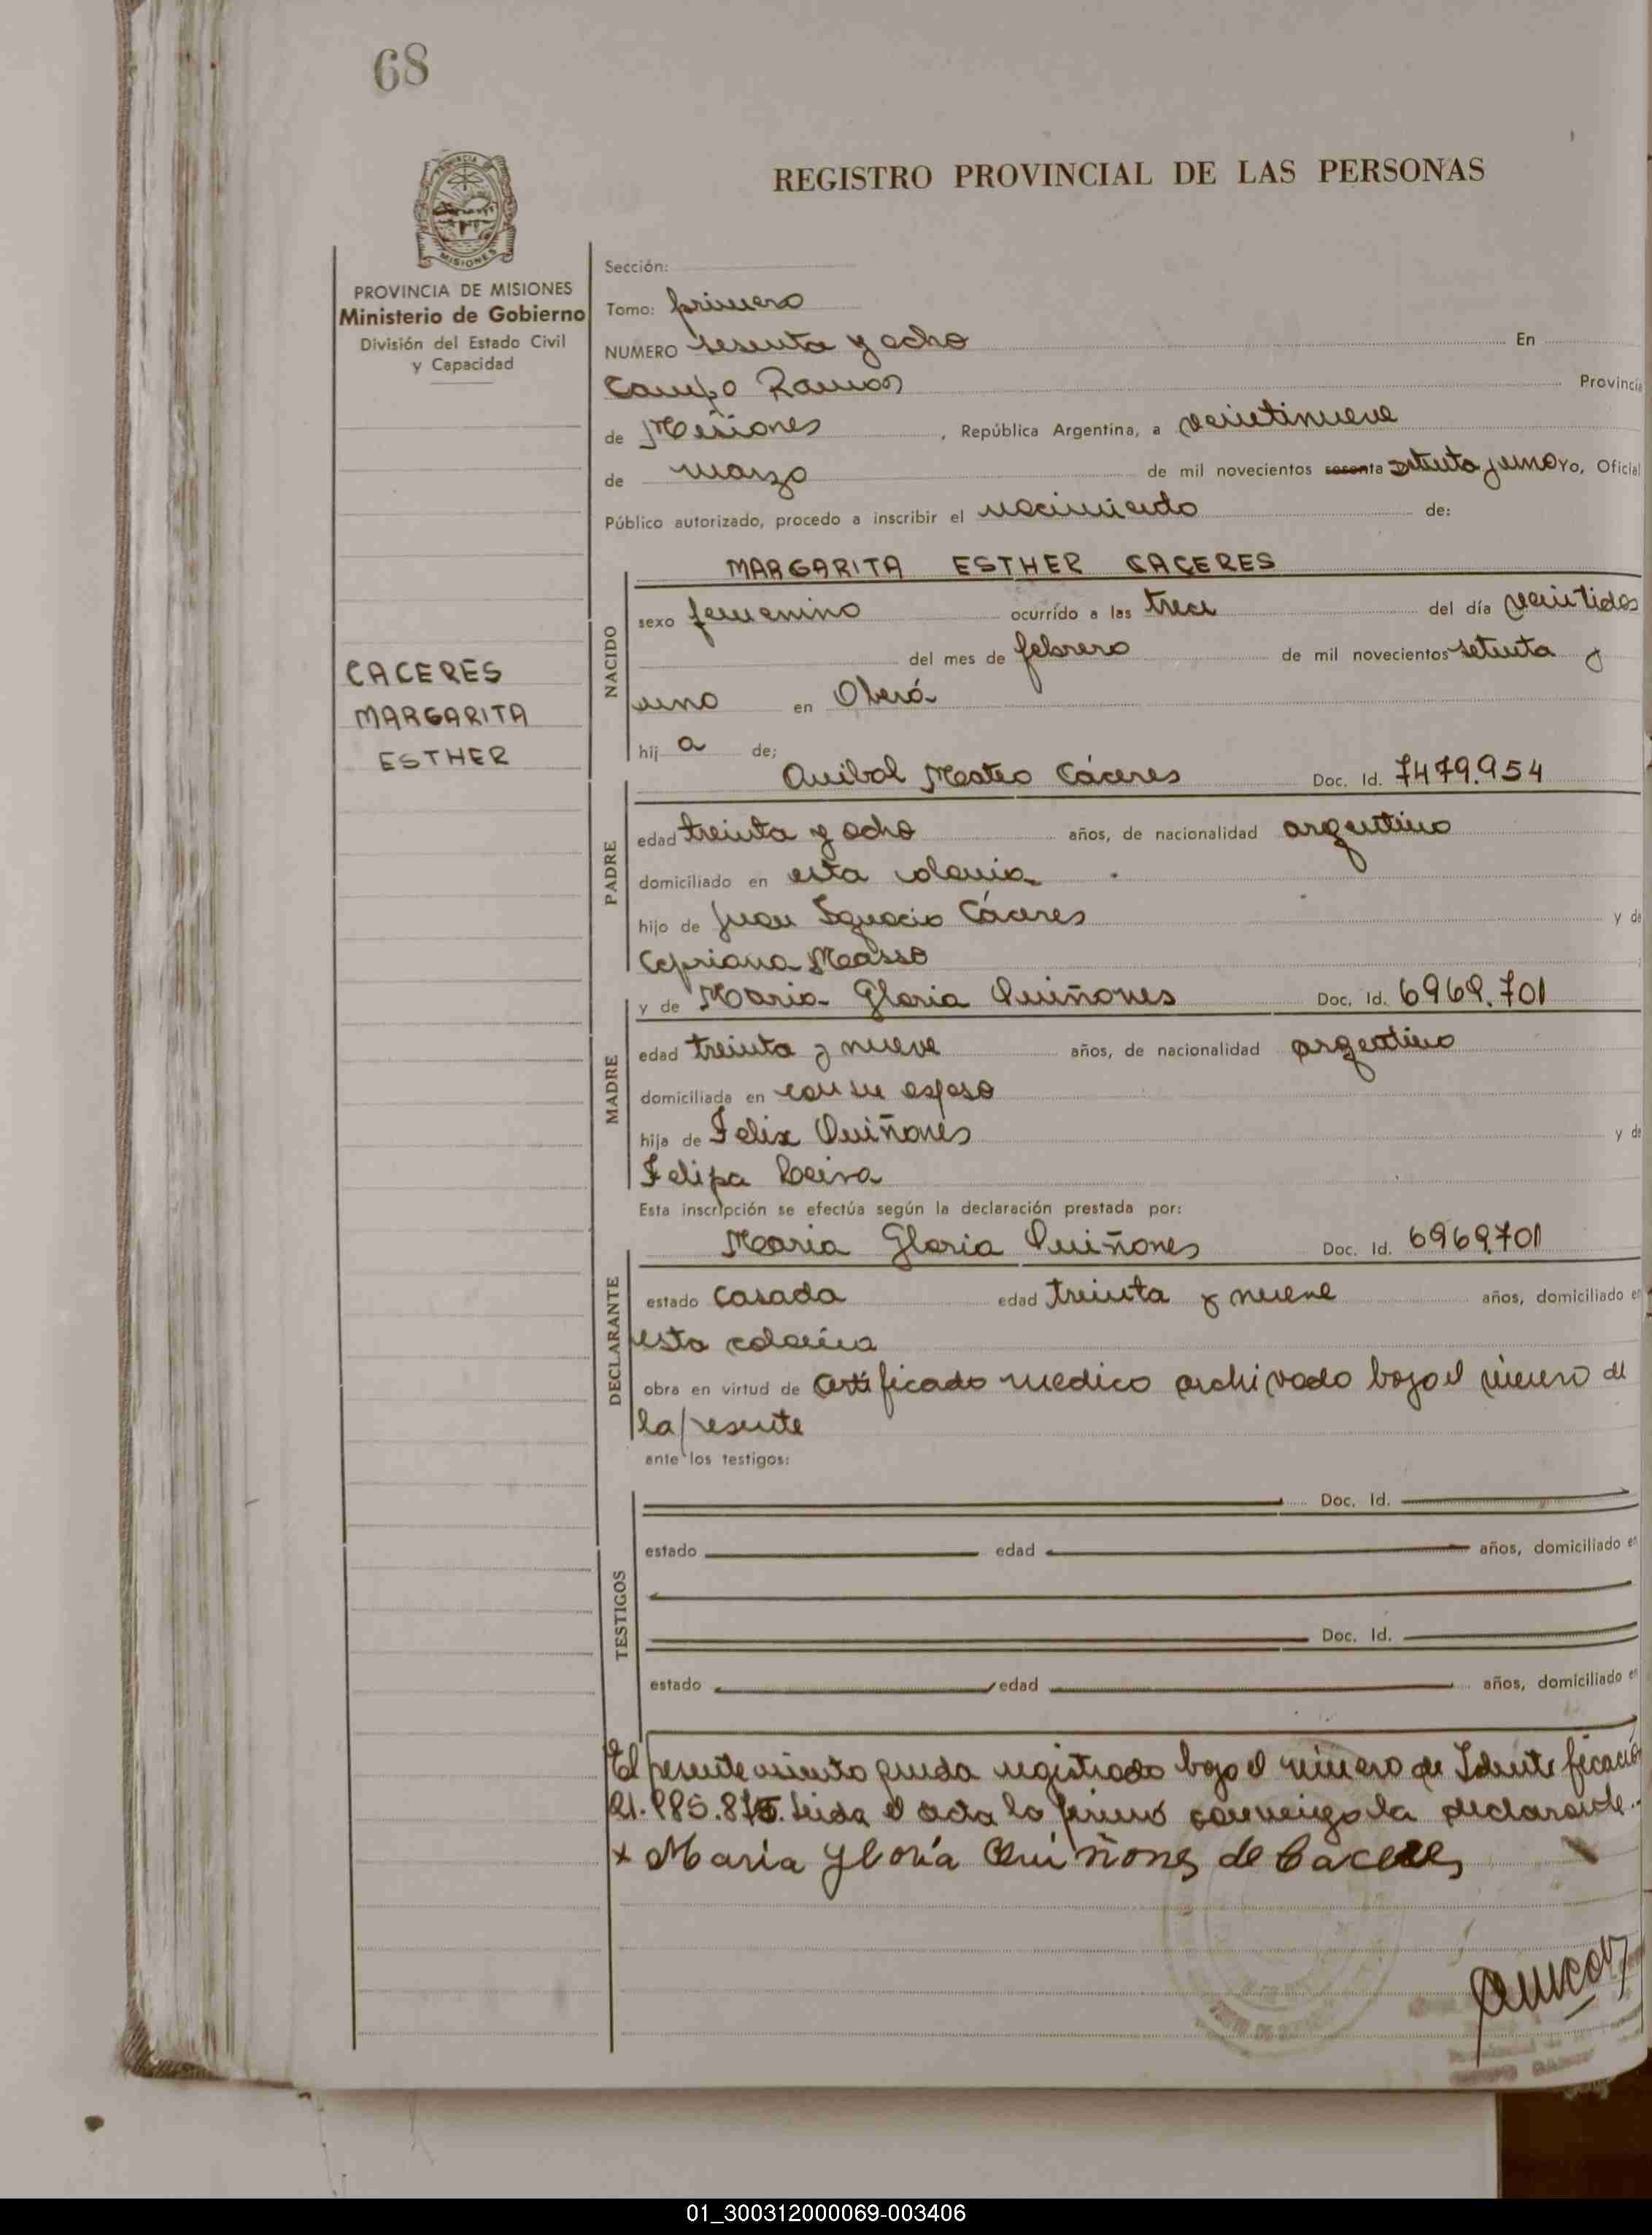 68
REGISTRO PROVINCIAL DE LAS PERSONAS
PROVINCIA DE MISIONES
Ministerio de Gobierno
División del Estado Civil
y Capacidad
CACERES
MARGARITA
ESTHER
Sección:
Tomo: primero
NUMERO sesenta y ocho En
Campo Ramon Provincia
de Misiones, República Argentina, a veintinueve
de marzo de mil novecientos sesenta setenta y uno Yo, Oficial
Público autorizado, procedo a inscribir el nacimiento de:
MARGARITA ESTHER CACERES
NACIDO
sexo femenino ocurrido a las trece del día veintidos
del mes de febrero de mil novecientos setenta y
uno en Oberá
hij a de;
Anibal Mateo Cáceres Doc. Id. 7479.954
PADRE
edad treinta y ocho años, de nacionalidad argentino
domiciliado en esta colonia
hijo de Juan Ignacio Cáceres y de
Cipriana Masso
y de Maria Gloria Quiñones Doc. Id. 6969.701
MADRE
edad treinta y nueve años, de nacionalidad argentino
domiciliada en con su esposo
hija de Felix Quiñones y de
Felipa Leiva
Esta inscripción se efectúa según la declaración prestada por:
Maria Gloria Quiñones Doc. Id. 6969.701
DECLARANTE
estado casada edad treinta y nueve años, domiciliado en
esta colonia
obra en virtud de certificado medico archivado bajo el número de
la presente
ante los testigos:
TESTIGOS
Doc. Id.
estado edad años, domiciliado en
Doc. Id.
estado edad años, domiciliado en
El presente asiento queda registrado bajo el número de Identificación
21.885.815. Leida el acta la firmó conmigo la declarante.
x Maria Yloria Quiñones de Caceres
01_300312000069-003406